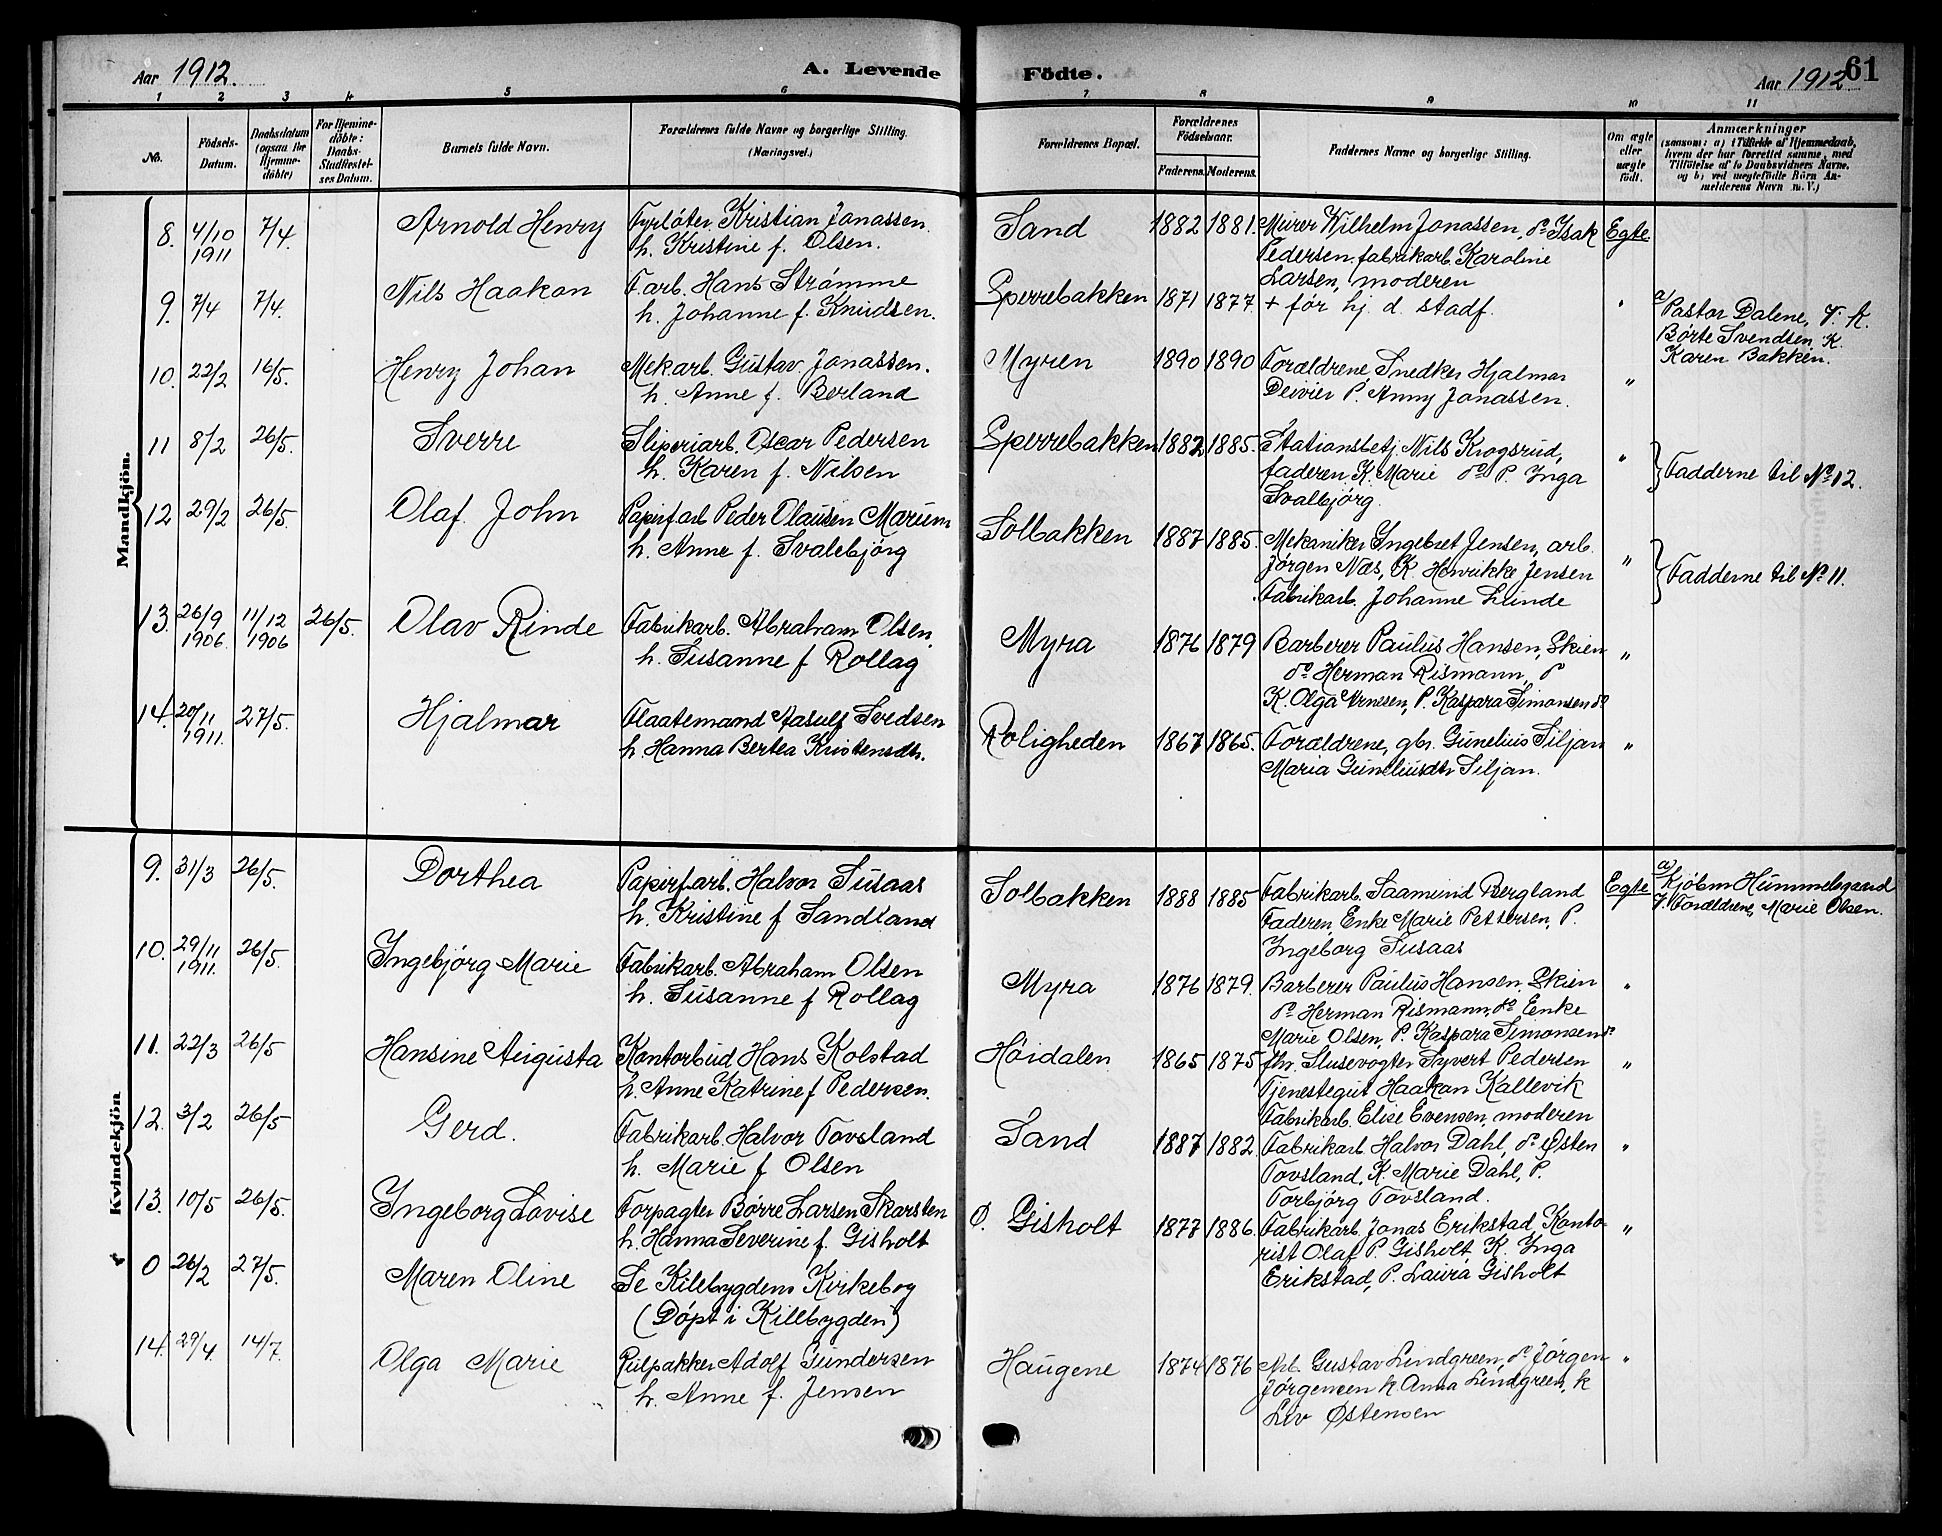 Aar 1912.
A. Levende
1 2 3 4 5 6
No.
Födsels-
Datum.
Daabsdatum
(ogsaa for
Hjemme-
döbte)
For Hjemme-
döbte:
Daabs-
Stadfæstel-
ses Datum.
Barnets fulde Navn.
Forældrenes fulde Navne og borgerlige Stilling.
(Næringsvei.)
Mandkjön.
8. 4/10 1911 7/4. Arnold Henry
Fyrböter Kristian Jonassen.
h. Kristine f. Olsen.
9. 7/4 7/4. Nils Haakon
F.arb. Hans Strømme
h. Johanne f. Knudsen.
10. 22/2 16/5. Henry Johan
Mekarb. Gustav Jonassen.
h. Anne f. Berland
11 8/2 26/5. Sverre
Sliperiarb. Oscar Pedersen
h. Karen f. Nilsen
12 29/2 26/5. Olaf John
Papirf.arb Peder Olausen Marum
h. Anne f. Svalebjörg
13. 26/9 1906. 11/12 1906 26/5. Olav Rinde
Fabrikarb. Abraham Olsen.
h. Susanne f Rollag
14. 20/11 1911. 27/5. Hjalmar
Flaatemand Aasulf Svedsen
h. Hanna Bertea Kristensdtr.
Kvindekjön
9. 31/3 26/5. Dorthea
Papirf.arb. Halvor Susaas
h. Kristine f Sandland
10. 29/11 1911. 26/5. Ingebjörg Marie
Fabrikarb. Abraham Olsen
h. Susanne f Rollag
11. 22/3 26/5 Hansine Augusta
Kontorbud Hans Kolstad
h. Anne Katrine f Pedersen.
12. 3/2 26/5 Gerd.
Fabrikarb. Halvor Tovsland
h. Marie f Olsen
13. 10/5 26/5. Ingeborg Lovise
Forpagter Börre Larsen Skarsten
h. Hanna Severine f. Gisholt
0 26/2 27/5. Maren Oline
Se Kilebygdens Kirkebog
(Döpt i Kilebygden)
14. 29/4. 14/7. Olga Marie
Pulpakker Adolf Gundersen
h. Anne f. Jensen
Födte.
Aar 1912
61
7 8 9 10 11
Forældrenes Bopæl.
Forældrenes
Födselsaar.
Faderens. Moderens.
Faddernes Navne og borgerlige Stilling.
Om ægte
eller
uægte
födt.
Anmærkninger
(saasom: a) i Tilfælde af Hjemmedaab,
hvem der har forrettet samme, med
Tilföielse af to Daabsvidners Navne,
og b) ved uægtefödte Börn An-
melderens Navn m. V.)
Sand 1882 1881. Murer Wilhelm Jonassen, do Isak Egte
Pedersen, fabrikarb. Karoline
Larsen, moderen
Sperrebakken 1871 1877. + för hj. d. stadf. "
a) Pastor Dalene, V. K.
Börte Svendsen, K.
Karen Bakken.
Myren 1890 1890 Forældrene Snedker Hjalmar "
Deivier P. Anny Jonassen.
Sperrebakken 1882 1885. Stationsbetj. Nils Krogsrud, "
faderen, K. Marie do P. Inga
Svalbjörg.
} Fadderne til No 12.
Solbakken 1887 1885. Mekaniker Ingebret Jensen, arb. "
Jörgen Næs, K. Henrikke Jensen
Fabrikarb. Johanne Lunde
} Fadderne til No 11.
Myra 1876 1879 Barberer Paulus Hansen, Skien "
do Herman Rismann, P
K. Olga Arnesen, P. Kaspara Simonsen do
Roligheden 1867 1865. Forældrene, gbr. Gunelius Siljan "
Maria Guneliusdtr Siljan.
Solbakken 1888 1885 Fabrikarb. Saamund Bergland Egte
Faderen, Enke Marie Pettersen, P.
Ingeborg Susaas
a) Kjöbm Hummelsgaard
V. Forældrene, Marie Olsen.
Myra 1876 1879. Barberer Paulus Hansen, Skien "
do Herman Rismann, do Enke
Marie Olsen, P. Kaspara Simonsen do
Höidalen 1865 1875 fhv. Slusevogter Syvert Pedersen "
Tjenestegut Haakon Kallevik
Fabrikarb. Elise Evensen, moderen
Sand 1887 1882. Fabrikarb Halvor Dahl, do Østen "
Tovsland, K. Marie Dahl, P.
Torbjörg Tovsland.
Ö. Gisholt 1877 1886. Fabrikarb. Jonas Erikstad, Konto- "
rist Olaf P. Gisholt K. Inga
Erikstad, P. Laura Gisholt
Haugene 1874 1876 Arb. Gustav Lindgreen, do Jörgen "
Jörgensen k. Anna Lindgreen, k
Liv Østensen